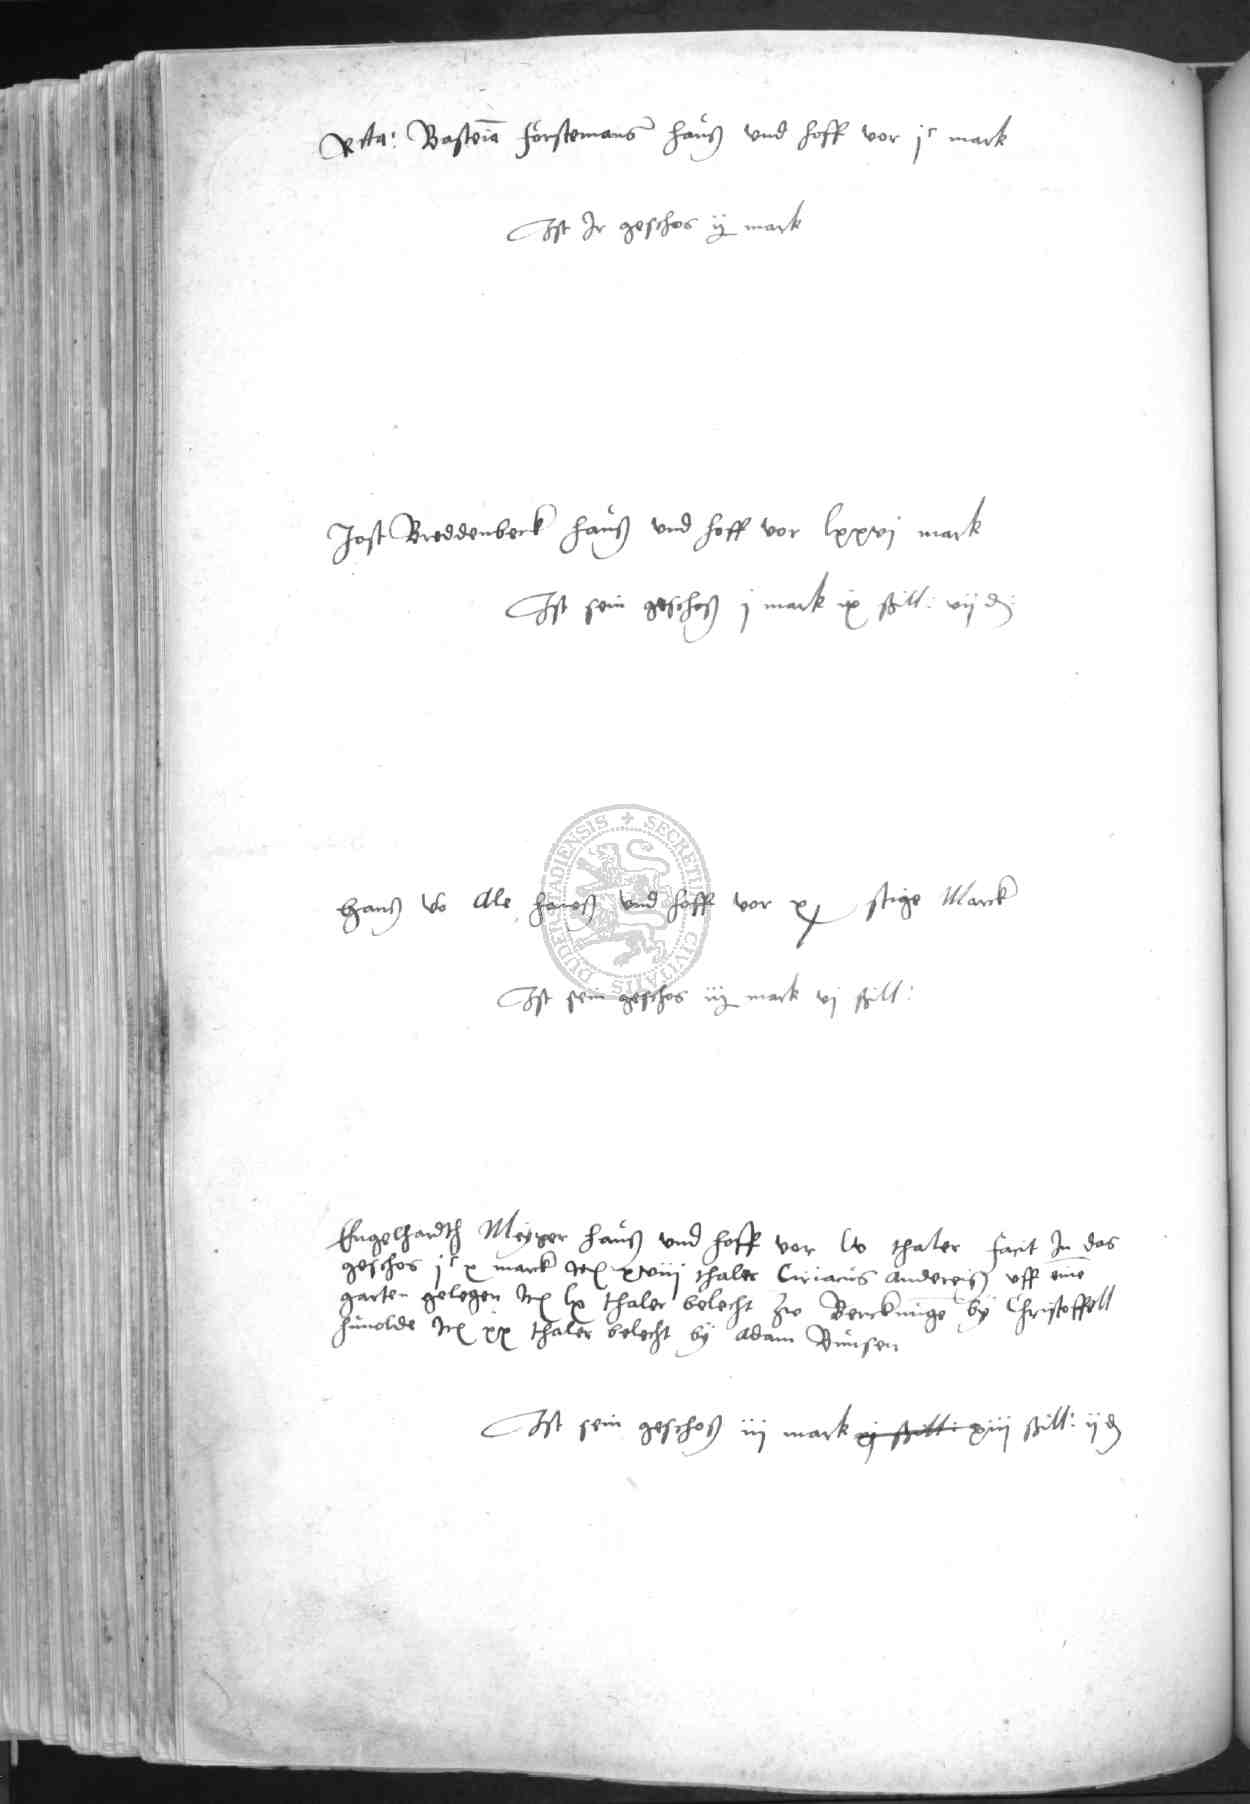 Rcta: Basteiā forstemans hauß vnd hoff vor jc mark
Ist Ir geschos ij mark
Jost Breddenbeck hauß vnd hoff vor lxxvj mark
Ist sein geschoß j mark ix ßill: vij d
SECRETUM CIVITATIS DUDERSTADIENSIS
Hanß vō Ale hauß vnd hoff vor stige Marck
Ist sein geschos iij mark vj ßill:
Engelhardth Meyger hauß vnd hoff vor lv thaler facit In das
geschos jc x marck Itē xviij thaler Ciriacus andereiß vff eine
garten gelegen Itē lx thaler belecht zw Berckunge by Christoffell
hunolde Itē xx thaler belecht by Adam Bunsen
Ist sein geschoß iij mark xj ßill: xiij ßill: ij d